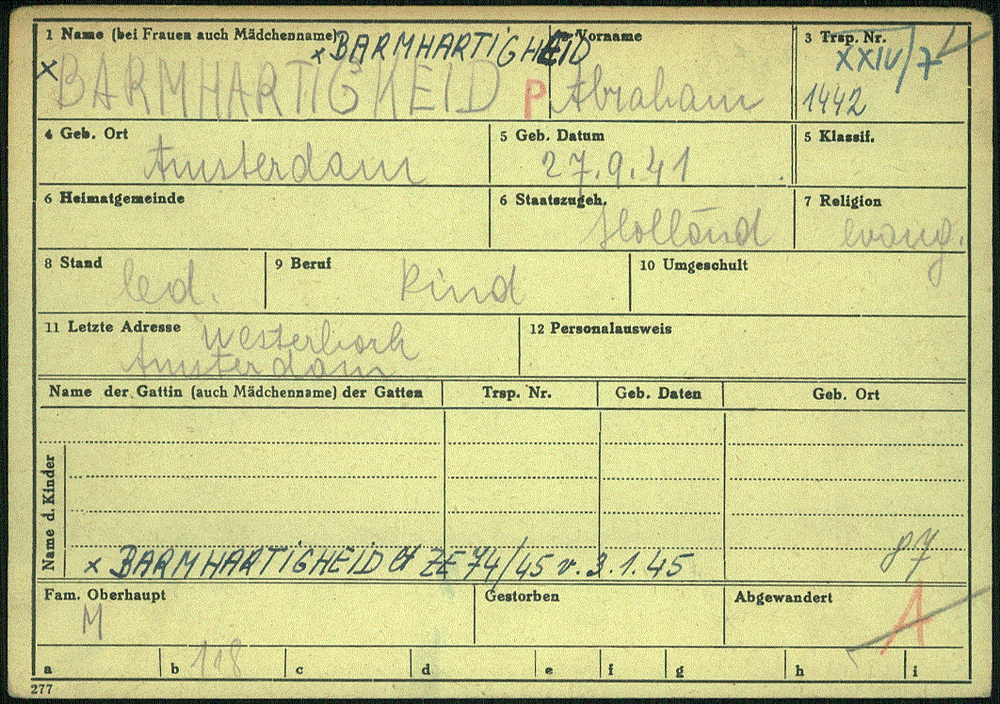 1 Name (bei Frauen auch Mädchenname)
x BARMHARTIGHEID
x BARMHARTIGHEID P
Vorname
Abraham
3 Trsp. Nr.
XXIV/7
1442
4 Geb. Ort
Amsterdam
5 Geb. Datum
27.9.41
5 Klassif.
6 Heimatgemeinde
6 Staatszugeh.
Holland
7 Religion
evang.
8 Stand
led.
9 Beruf
Kind
10 Umgeschult
11 Letzte Adresse
Westerbork
Amsterdam
12 Personalausweis
Name der Gattin (auch Mädchenname) der Gatten
Trsp. Nr.
Geb. Daten
Geb. Ort
Name d. Kinder
x BARMHARTIGHEID ZE 74/45 v. 3.1.45
87
Fam. Oberhaupt
M
Gestorben
Abgewandert
a
b 118
c
d
e
f
g
h
i
277